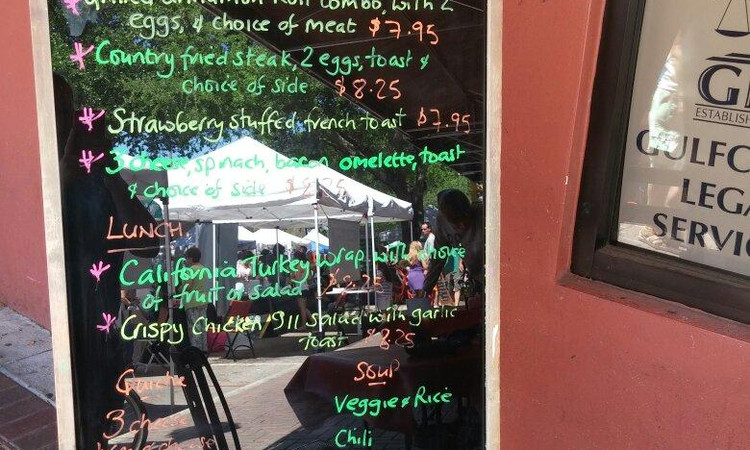 Grilled Cinnamon Roll Combo, with 2
eggs, & choice of meat $7.95
Country fried steak, 2 eggs, toast &
choice of side $8.25
Strawberry stuffed french toast $7.95
3 cheese, spinach, bacon omelette, toast
& choice of side
LUNCH
California Turkey wrap with choice
of fruit or salad
Crispy Chicken 911 salad with garlic
toast $8.25
Quiche
3 cheese
SOUP
Veggie & Rice
Chili
ESTABLIS
GULFC
LEGA
SERVIC